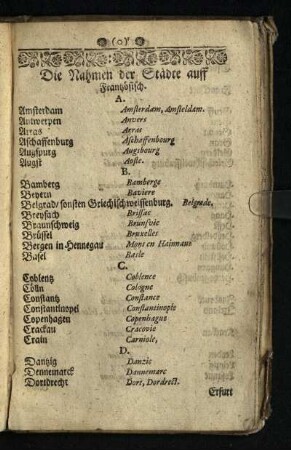 (o)
Die Nahmen der Städte auff
Frantzösisch.
A.
Amsterdam Amsterdam, Amsteldam.
Antwerpen Anvers
Arras Arras
Aschaffenburg Aschaffenbourg
Augspurg Augsbourg
Augst Aoste.
B.
Bamberg Bamberge
Beyern Baviere
Belgrad/ sonsten Griechischweissenburg, Belgrade.
Breysach Brissac
Braunschweig Brunsvic
Brüssel Bruxelles
Bergen in Hennegau Mons en Hainnaut
Basel Basle
C.
Coblentz Coblence
Cölln Cologne
Constantz Constance
Constantinopel Constantinople
Copenhagen Copenhague
Crackau Cracovie
Crain Carniole,
D.
Dantzig Danzic
Dennemarck Dannemarc
Dortrecht Dort, Dordrect.
Erfurt